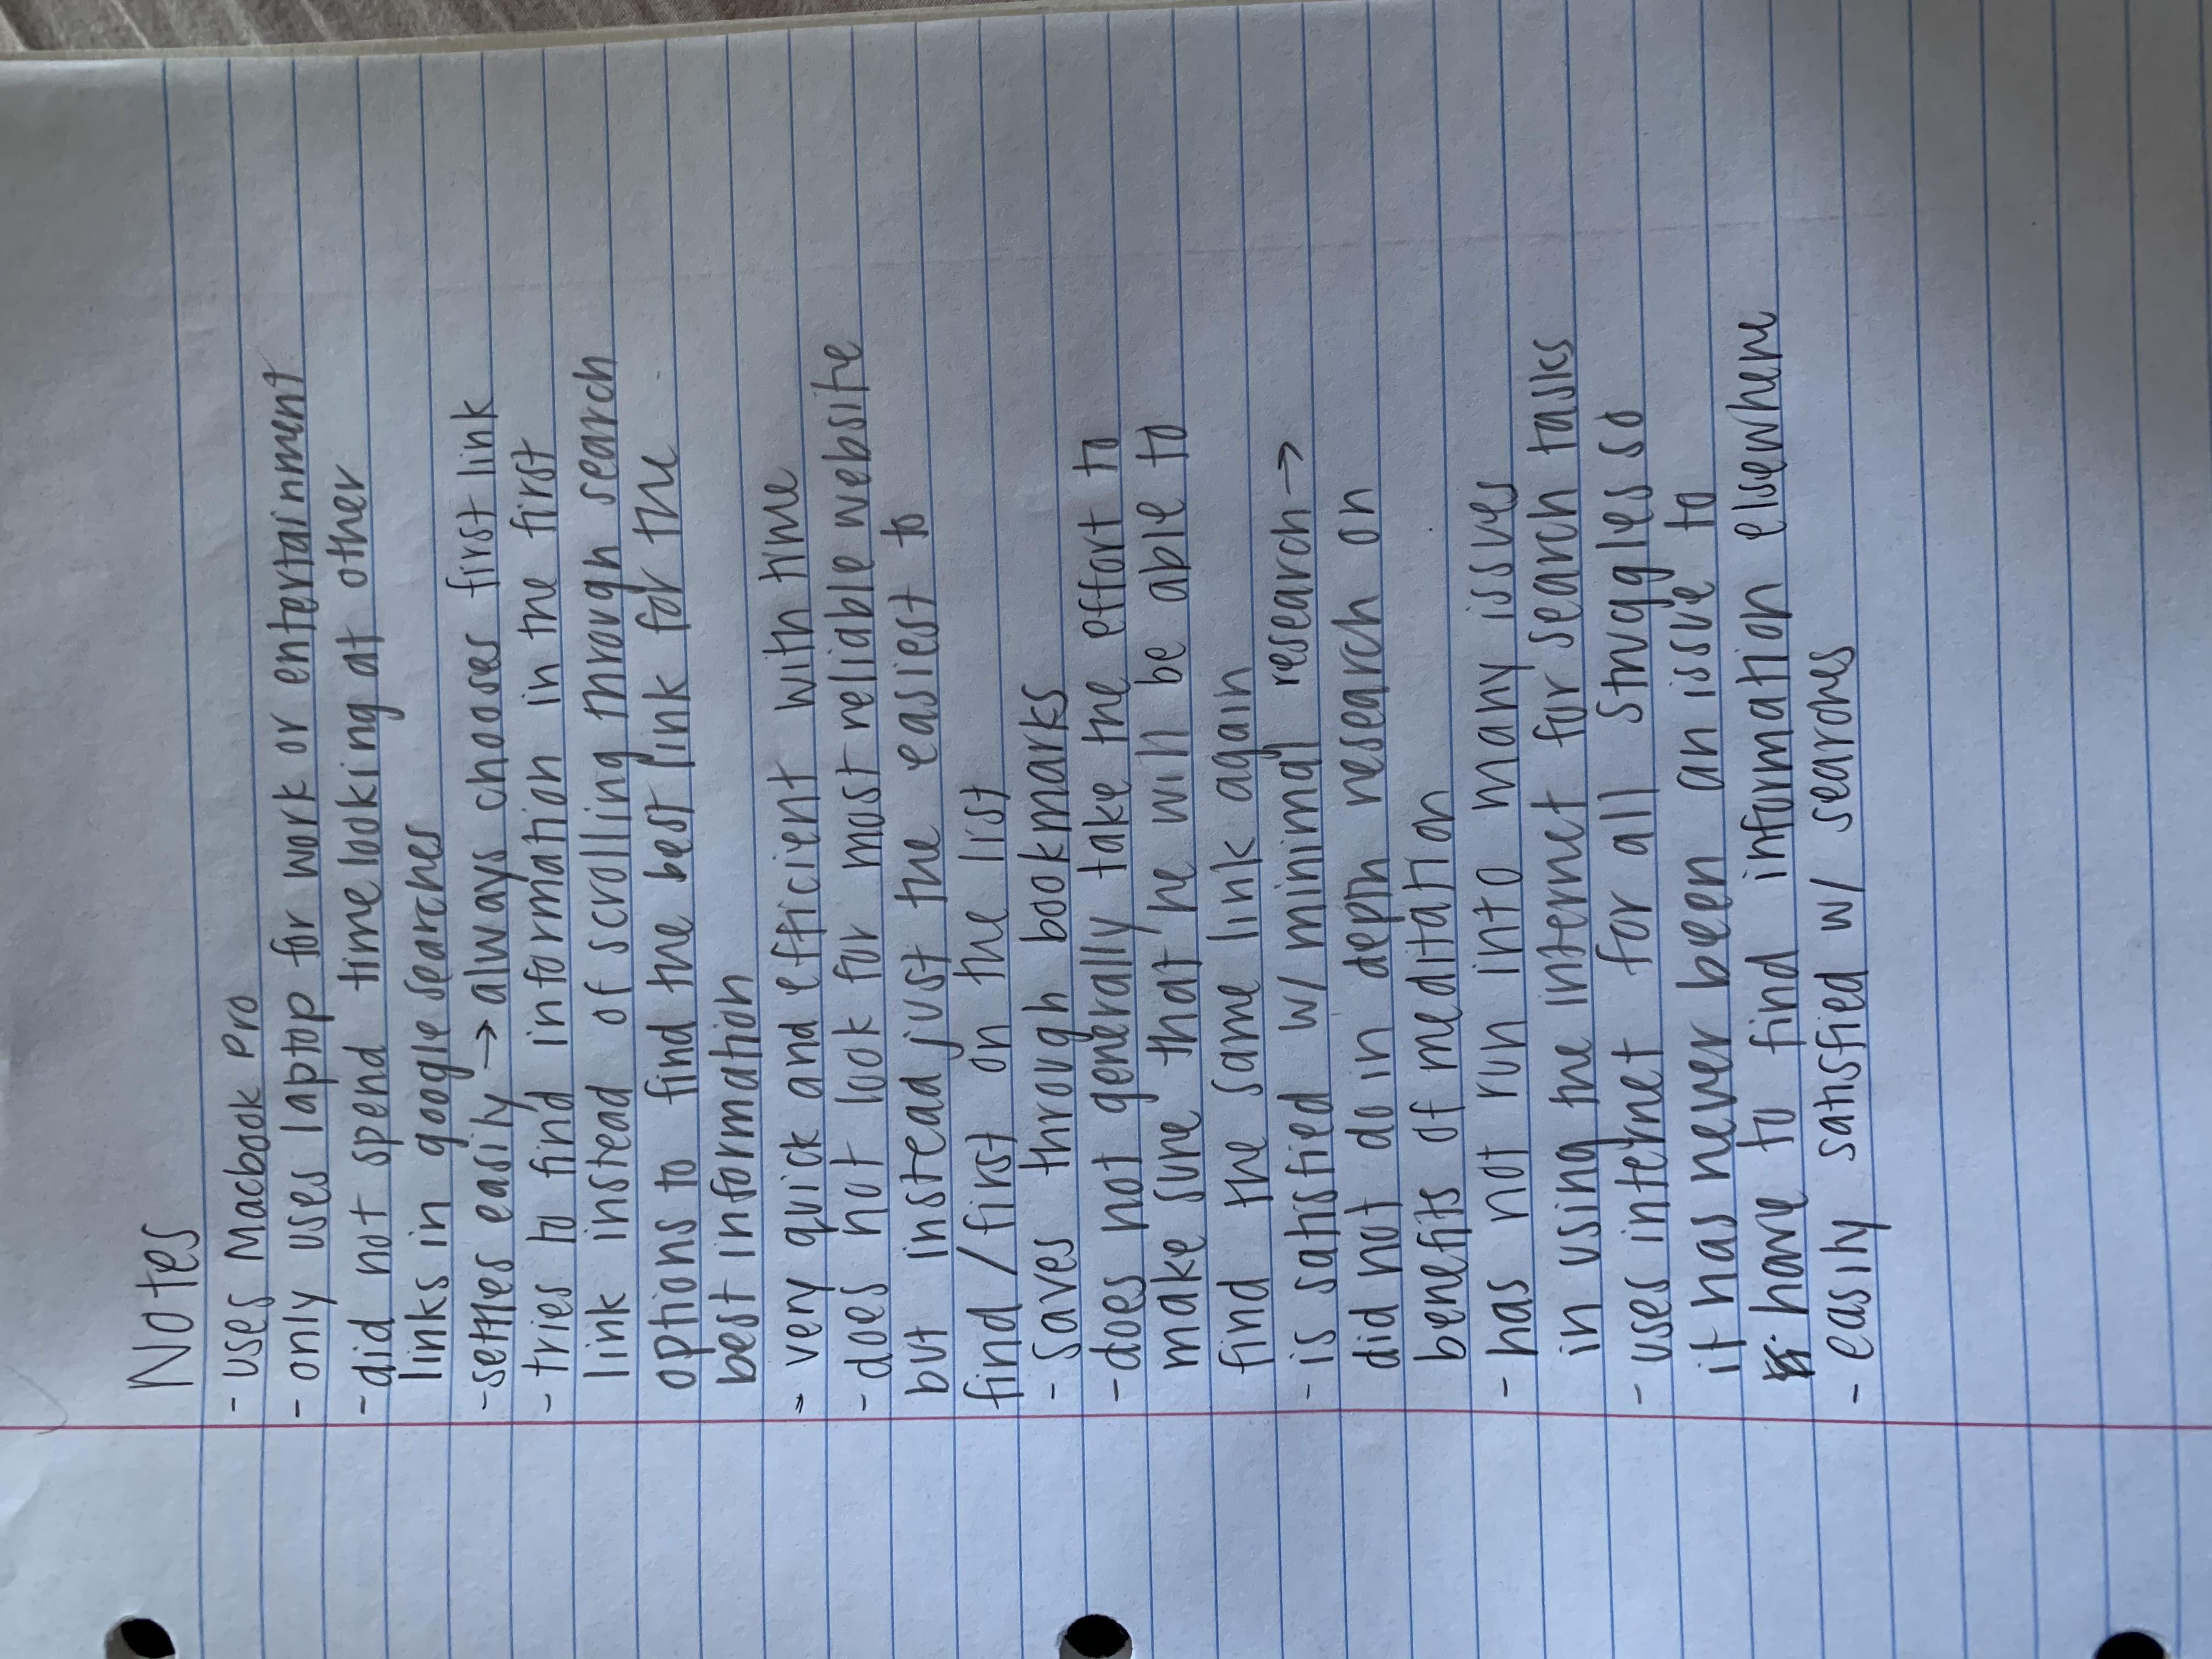 Notes
- uses Macbook Pro
- only uses laptop for work or entertainment
- did not spend time looking at other
links in google searches
- settles easily → always chooses first link
- tries to find information in the first
link instead of scrolling through search
options to find the best link for the
best information
- very quick and efficient with time
- does not look for most reliable website
but instead just the easiest to
find / first on the list
- saves through bookmarks
- does not generally take the effort to
make sure that he will be able to
find the same link again
- is satisfied w/ minimal research →
did not do in depth research on
benefits of meditation
- has not run into many issues
in using the internet for search tasks
- uses internet for all struggles so
it has never been an issue to
have to find information elsewhere
- easily satisfied w/ searches